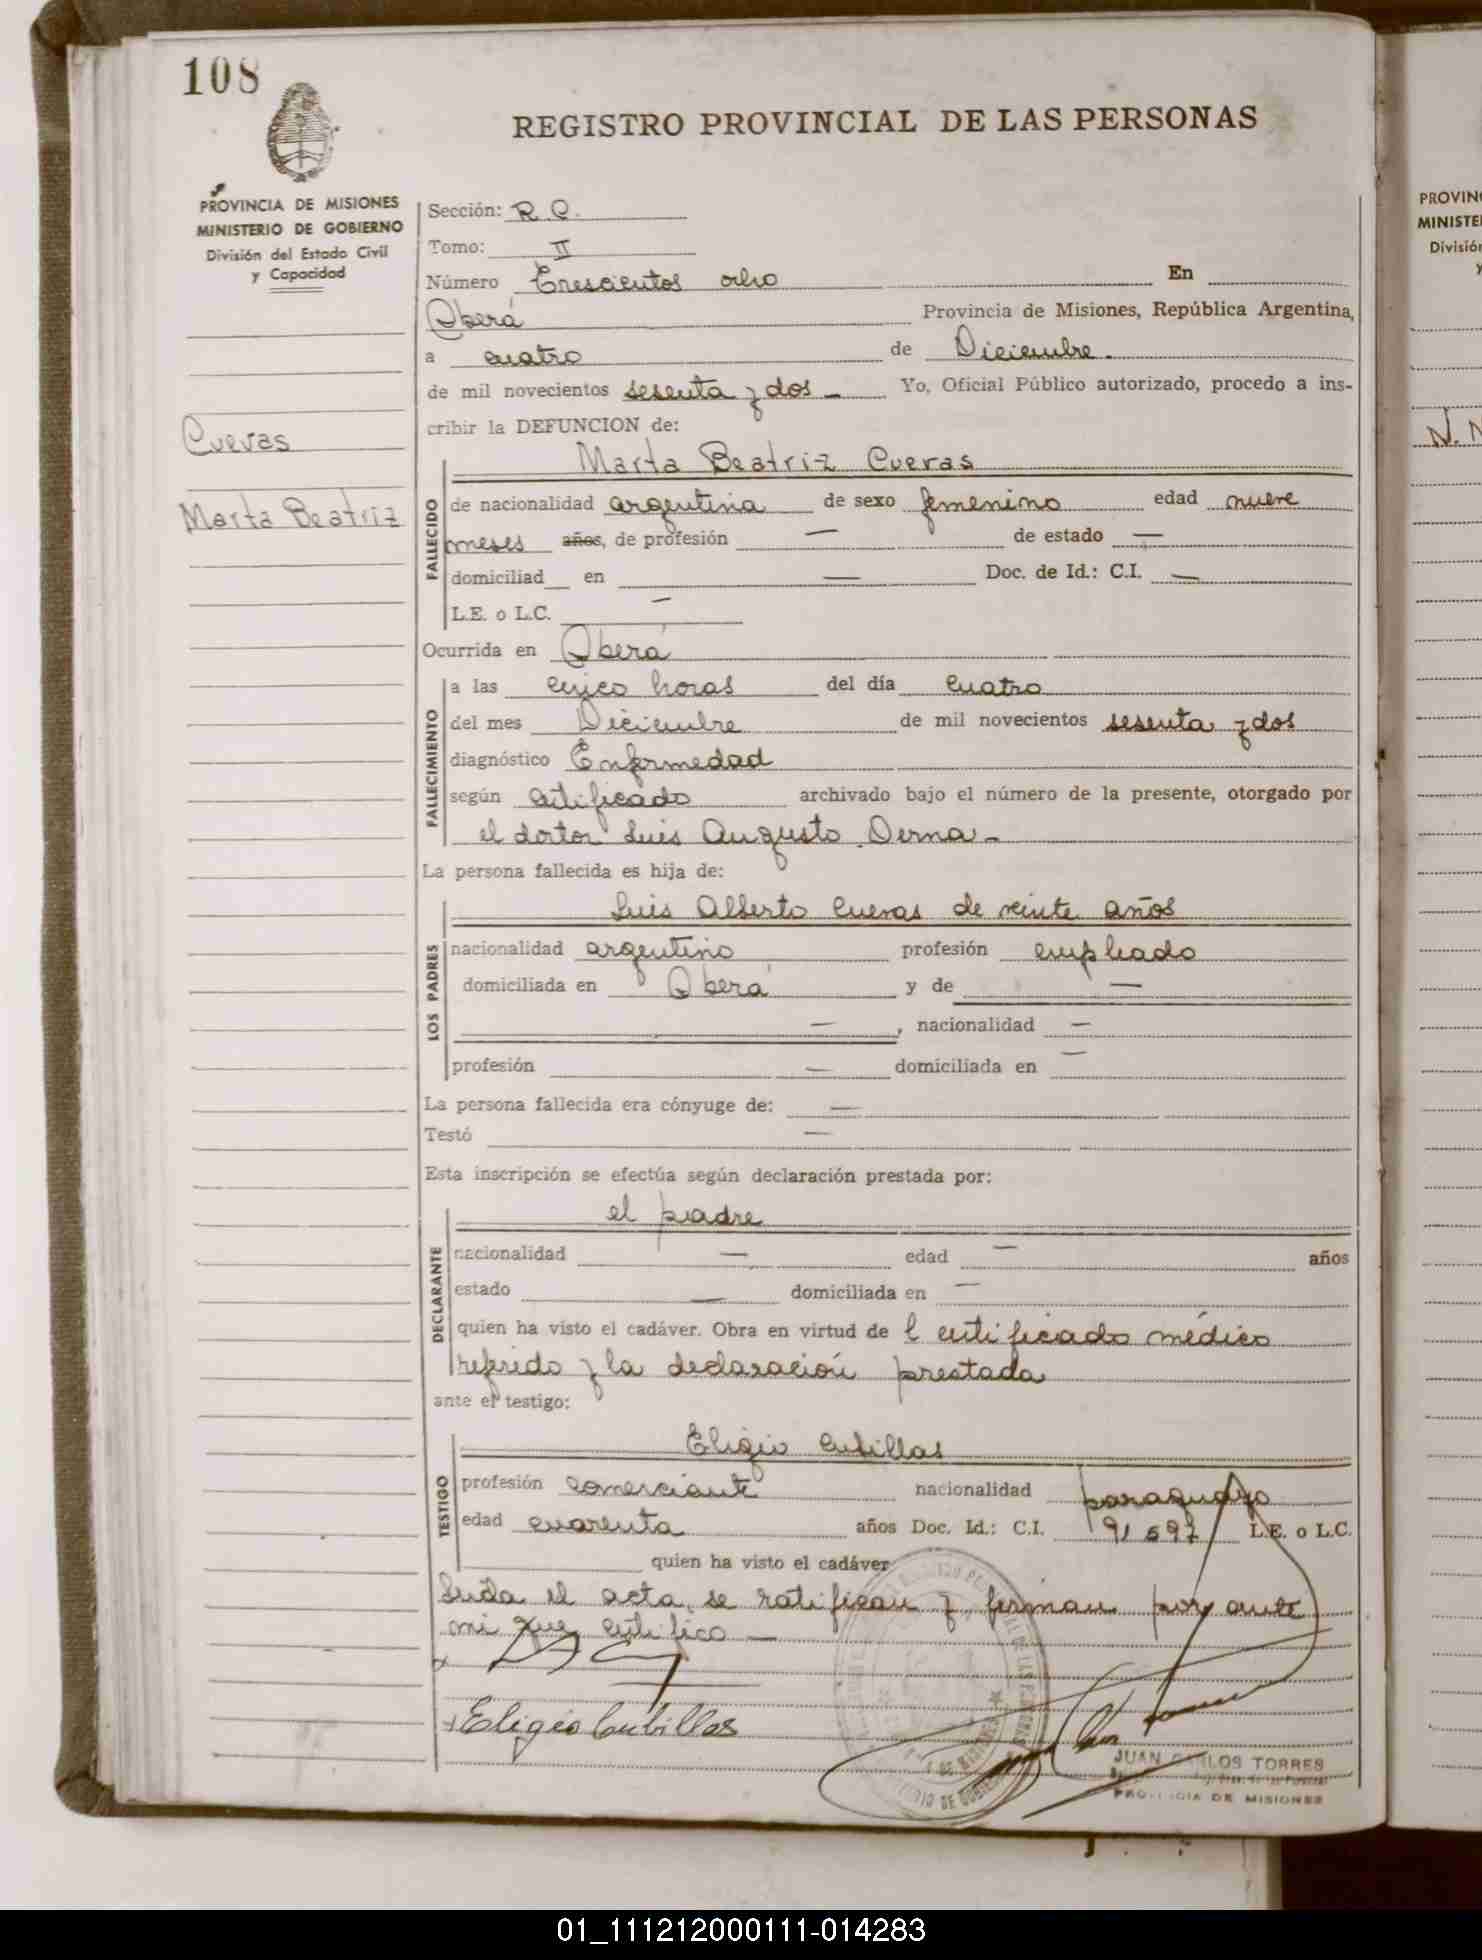 108
REGISTRO PROVINCIAL DE LAS PERSONAS
PROVINCIA DE MISIONES
MINISTERIO DE GOBIERNO
División del Estado Civil
y Capacidad
Cuevas
Marta Beatriz
Sección: R.C.
Tomo: II
Número Trescientos ocho En
Oberá Provincia de Misiones, República Argentina,
a cuatro de Diciembre.
de mil novecientos sesenta y dos - Yo, Oficial Público autorizado, procedo a ins-
cribir la DEFUNCION de:
Marta Beatriz Cuevas
FALLECIDO
de nacionalidad argentina de sexo femenino edad nueve
meses años, de profesión — de estado —
domiciliad en — Doc. de Id.: C.I. —
L.E. o L.C. —
Ocurrida en Oberá
FALLECIMIENTO
a las cinco horas del día cuatro
del mes Diciembre de mil novecientos sesenta y dos
diagnóstico Enfermedad
según certificado archivado bajo el número de la presente, otorgado por
el doctor Luis Augusto Derna -
La persona fallecida es hija de:
LOS PADRES
Luis Alberto Cuevas de veinte años
nacionalidad argentino profesión empleado
domiciliada en Oberá y de —
—, nacionalidad —
profesión — domiciliada en —
La persona fallecida era cónyuge de: —
Testó —
Esta inscripción se efectúa según declaración prestada por:
DECLARANTE
el padre
nacionalidad — edad — años
estado — domiciliada en —
quien ha visto el cadáver. Obra en virtud de l certificado médico
referido y la declaración prestada
ante el testigo:
TESTIGO
Eligio Cubillas
profesión comerciante nacionalidad paraguayo
edad cuarenta años Doc. Id.: C.I. 91697 L.E. o L.C.
quien ha visto el cadáver
Leída el acta, se ratifican y firman por ante
mi que certifico —
Eligio Cubillas
JUAN CARLOS TORRES
PROVINCIA DE MISIONES
PROVIN
MINISTE
División
y
N. N
01_111212000111-014283